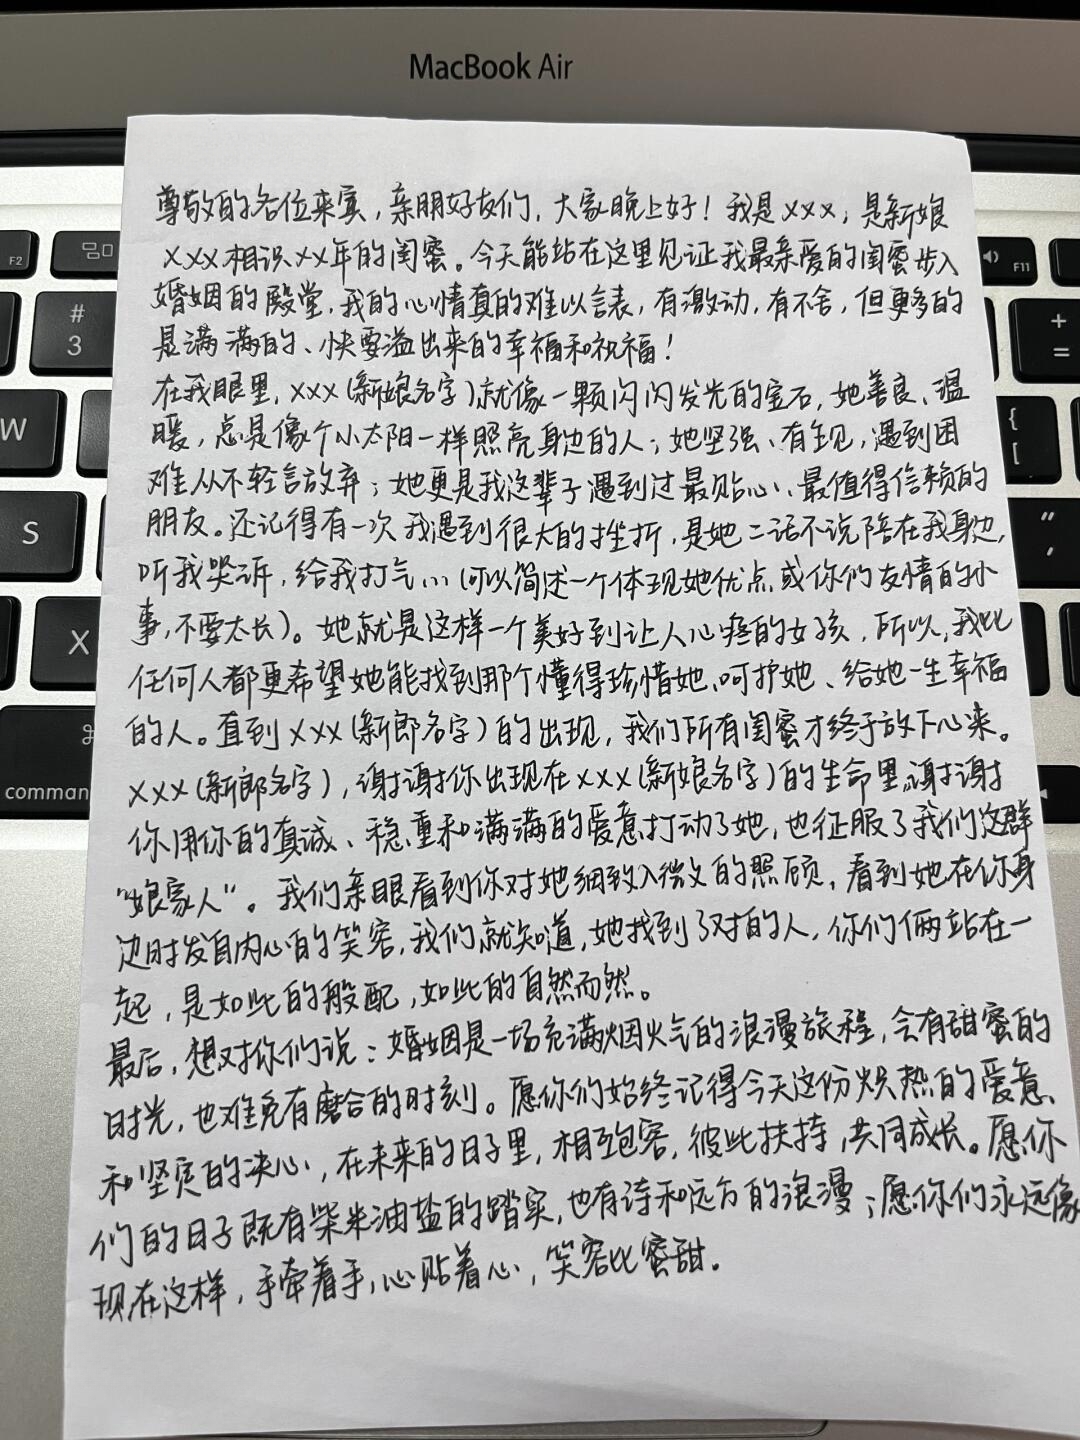 MacBook Air
尊敬的各位来宾，亲朋好友们，大家晚上好！我是xxx，是新娘
xxx相识xx年的闺蜜。今天能站在这里见证我最亲爱的闺蜜步入
婚姻的殿堂，我的心情真的难以言表，有激动，有不舍，但更多的
是满满的、快要溢出来的幸福和祝福！
在我眼里，xxx(新娘名字)就像一颗闪闪发光的宝石，她善良、温
暖，总是像个小太阳一样照亮身边的人；她坚强、有主见，遇到困
难从不轻言放弃；她更是我这辈子遇到过最贴心、最值得信赖的
朋友。还记得有一次我遇到很大的挫折，是她二话不说陪在我身边，
听我哭诉，给我打气…(可以简述一个体现她优点或你们友情的小
事，不要太长)。她就是这样一个美好到让人心疼的女孩，所以，我比
任何人都更希望她能找到那个懂得珍惜她、呵护她、给她一生幸福
的人。直到xxx(新郎名字)的出现，我们所有闺蜜才终于放下心来。
xxx(新郎名字)，谢谢你出现在xxx(新娘名字)的生命里，谢谢
你用你的真诚、稳重和满满的爱意打动了她，也征服了我们这群
“娘家人”。我们亲眼看到你对她细致入微的照顾，看到她在你身
边时发自内心的笑容，我们就知道，她找到了对的人，你们俩站在一
起，是如此的般配，如此的自然而然。
最后，想对你们说：婚姻是一场充满烟火气的浪漫旅程，会有甜蜜的
时光，也难免有磨合的时刻。愿你们始终记得今天这份炽热的爱意
和坚定的决心，在未来的日子里，相互包容，彼此扶持，共同成长。愿你
们的日子既有柴米油盐的踏实，也有诗和远方的浪漫；愿你们永远像
现在这样，手牵着手，心贴着心，笑容比蜜甜。
F2
F11
#
3
+
=
W
{
[
S
"
'
X
⌘
comman